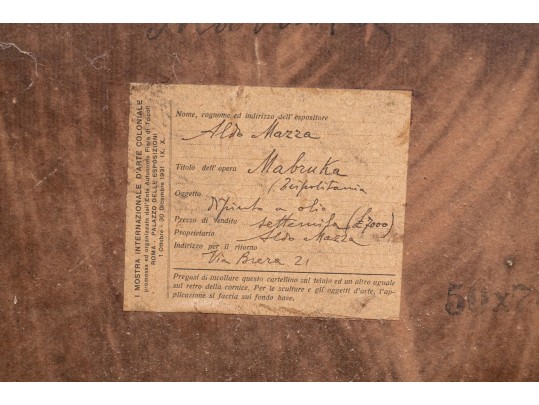 I MOSTRA INTERNAZIONALE D'ARTE COLONIALE
promossa ed organizzata dall'Ente Autonomo Fiera di Tripoli
ROMA - PALAZZO DELLE ESPOSIZIONI
1 Ottobre - 30 Dicembre 1931 - IX. X.
Nome, cognome ed indirizzo dell'espositore
Aldo Mazza
Titolo dell'opera Mabruka
(Tripolitania
Oggetto Dipinto a olio
Prezzo di vendita settemila (£7000)
Proprietario Aldo Mazza
Indirizzo per il ritorno
Via Brera 21
Pregasi di incollare questo cartellino sul telaio ed un altro uguale
sul retro della cornice. Per le sculture e gli oggetti d'arte, l'ap-
plicazione si faccia sul fondo base.
50x7